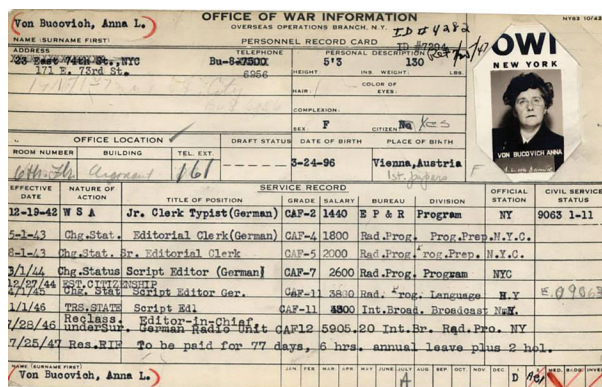 Von Bucovich, Anna L.
NAME (SURNAME FIRST)
OFFICE OF WAR INFORMATION
OVERSEAS OPERATIONS BRANCH, N.Y.
PERSONNEL RECORD CARD
NY83 10/42
ID # 4282
ID #7204
OWI
NEW YORK
VON BUCOVICH ANNA
ADDRESS
TELEPHONE
PERSONAL DESCRIPTION
23 East 74th St., NYC
Bu-8-7500
5'3
130
171 E. 73rd St.
6956
HEIGHT INS WEIGHT: LBS.
HAIR:
COLOR OF EYES:
COMPLEXION:
SEX F
CITIZEN No Yes
OFFICE LOCATION
ROOM NUMBER BUILDING TEL. EXT.
6th Fl. Argonaut 161
DRAFT STATUS
DATE OF BIRTH
3-24-96
PLACE OF BIRTH
Vienna, Austria
1st papers
SERVICE RECORD
EFFECTIVE DATE NATURE OF ACTION TITLE OF POSITION GRADE SALARY BUREAU DIVISION OFFICIAL STATION CIVIL SERVICE STATUS
12-19-42 W S A Jr. Clerk Typist(German) CAF-2 1440 E P & R Program NY 9063 1-11
5-1-43 Chg.Stat. Editorial Clerk(German) CAF-4 1800 Rad.Prog. Prog.Prep. N.Y.C.
8-1-43 Chg.Stat. Sr. Editorial Clerk CAF-5 2000 Rad.Prog. Prog.Prep. N.Y.C.
3/1/44 Chg.Status Script Editor (German) CAF-7 2600 Rad.Prog. Program NYC
12/27/44 EST.CITIZENSHIP
4/1/45 Chg. Stat Script Editor Ger. CAF-11 3800 Rad. Prog. Language N.Y
1/1/46 TRS.STATE Script Edl CAF-11 4300 Int.Broad. Broadcast N.Y.
7/28/46 Reclass. underSur. Editor-in-Chief German Radio Unit CAF12 5905.20 Int.Br. Rad.Pro. NY
7/25/47 Res.RIF To be paid for 77 days, 6 hrs. annual leave plus 2 hol.
NAME (SURNAME FIRST)
Von Bucovich, Anna L.
JAN FEB MAR APR MAY JUNE JULY AUG SEP OCT NOV DEC
A
D